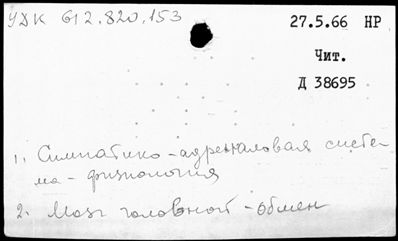 УДК 612.820.153
27.5.66 НР
Чит.
Д 38695
1. Симпатико-адреналовая систе-
ма - физиология
2. Мозг головной - обмен